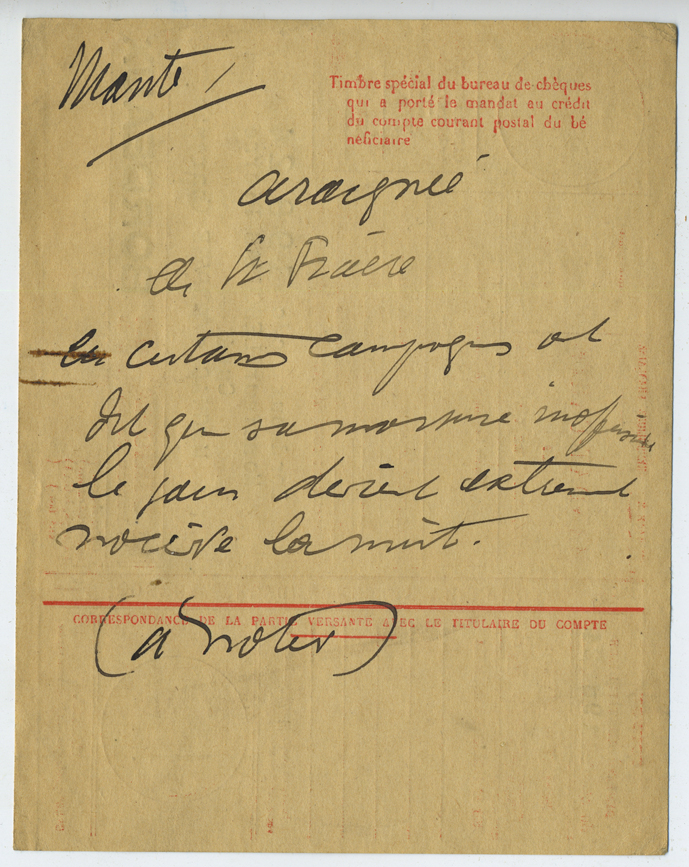 Mante
Timbre spécial du bureau de chèques
qui a porté le mandat au crédit
du compte courant postal du bé
néficiaire
araignée
de
certaines campagnes
dit que sa morsure inoffensive
le jour devient
nocive la nuit.
CORRESPONDANCE DE LA PARTIE VERSANTE AVEC LE TITULAIRE DU COMPTE
(a noter)